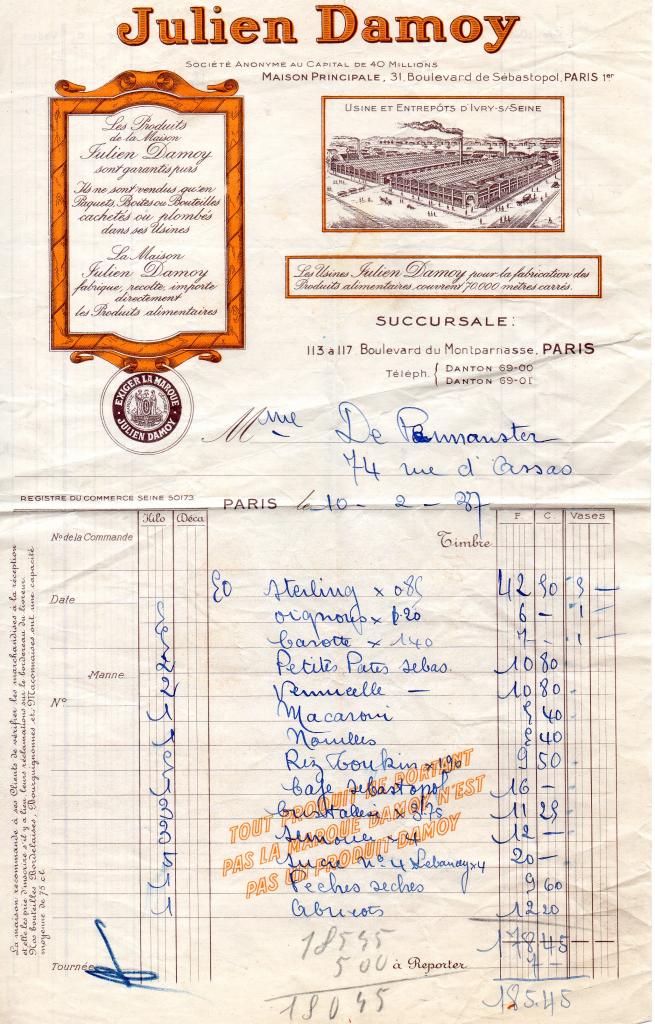 Julien Damoy
SOCIÉTÉ ANONYME AU CAPITAL DE 40 MILLIONS
MAISON PRINCIPALE, 31. Boulevard de Sébastopol, PARIS 1er
Les Produits
de la Maison
Julien Damoy
sont garantis purs
Ils ne sont vendus qu'en
Paquets, Boîtes ou Bouteilles
cachetés ou plombés
dans ses Usines
La Maison
Julien Damoy
fabrique, récolte, importe
directement
les Produits alimentaires
EXIGER LA MARQUE
JULIEN DAMOY
USINE ET ENTREPÔTS D'IVRY-S/SEINE
Les Usines Julien Damoy pour la fabrication des
Produits alimentaires, couvrent 70.000 mètres carrés.
SUCCURSALE:
113 à 117 Boulevard du Montparnasse, PARIS
Téléph. { DANTON 69-00
DANTON 69-01
Mme De
74 rue d'Assas
REGISTRE DU COMMERCE SEINE 50173
PARIS le 10 - 2 - 37
Kilo Déca F. C. Vases
No de la Commande
Timbre
Date
Manne
No
50 Sterling x 085 42 50 3 —
oignons x 1.20 6 — 1
Carotte x 140 7 — 1
2 Petites Pates sebas. 10 80
2 Vermicelle — 10 80
1 Macaroni 5 40
1 Nouilles 5 40
5 Riz Tonkin x 190 9 50
Café Sebastopol 16 —
3 Cristallisé x 3.75 11 25
3 Semoule x 4 12 —
5 Sucre No 4 Lebaudy x 4 20 —
1 Peches seches 9 60
1 Abricots 12 20
TOUT PRODUIT NE PORTANT
PAS LA MARQUE DAMOY N'EST
PAS UN PRODUIT DAMOY
178 45 —
7 —
Tournée
à Reporter
185.45
185 45
5 00
180 45
La maison recommande à ses Clients de vérifier les marchandises à la réception
et elle les prie d'inscrire s'il y a lieu leurs réclamations sur le bordereau du livreur.
Nos bouteilles Bordelaises, Bourguignonnes et Maconnaises ont une capacité
moyenne de 75 cl.